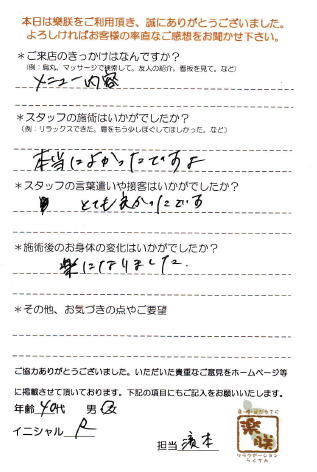 本日は楽朕をご利用頂き、誠にありがとうございました。
よろしければお客様の率直なご感想をお聞かせ下さい。
＊ご来店のきっかけはなんですか？
（例：烏丸、マッサージで検索して。友人の紹介。看板を見て。など）
メニュー内容
＊スタッフの施術はいかがでしたか？
（例：リラックスできた。肩をもう少しほぐしてほしかった。など）
本当によかったですよ
＊スタッフの言葉遣いや接客はいかがでしたか？
とても良かったです
＊施術後のお身体の変化はいかがでしたか？
楽になりました。
＊その他、お気づきの点やご要望
ご協力ありがとうございました。いただいた貴重なご意見をホームページ等
に掲載させて頂いております。下記の項目にもご記入をお願いいたします。
年齢 40代 男 女
イニシャル R
担当 濱本
楽朕
リラクゼーション
らくちん